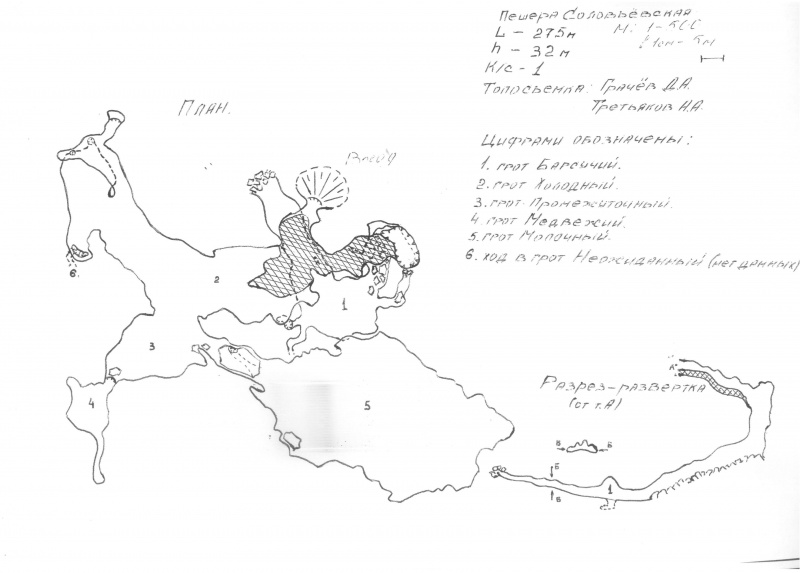 Пещера Соловьёвская
L - 275м М: 1-500
h - 32м в 1см-5м
К/с - 1
Топосъемка: Грачёв Д.А.
Третьяков И.А.
План.
Вход
Цифрами обозначены:
1. грот Барсучий.
2. грот Холодный.
3. грот Промежуточный.
4 грот Медвежий.
5. грот Молочный.
6. ход в грот Неожиданный (нет данных)
6.
2
1
3
4
5
Разрез-развертка
(от т.А)
А
Б Б
Б
Б
1